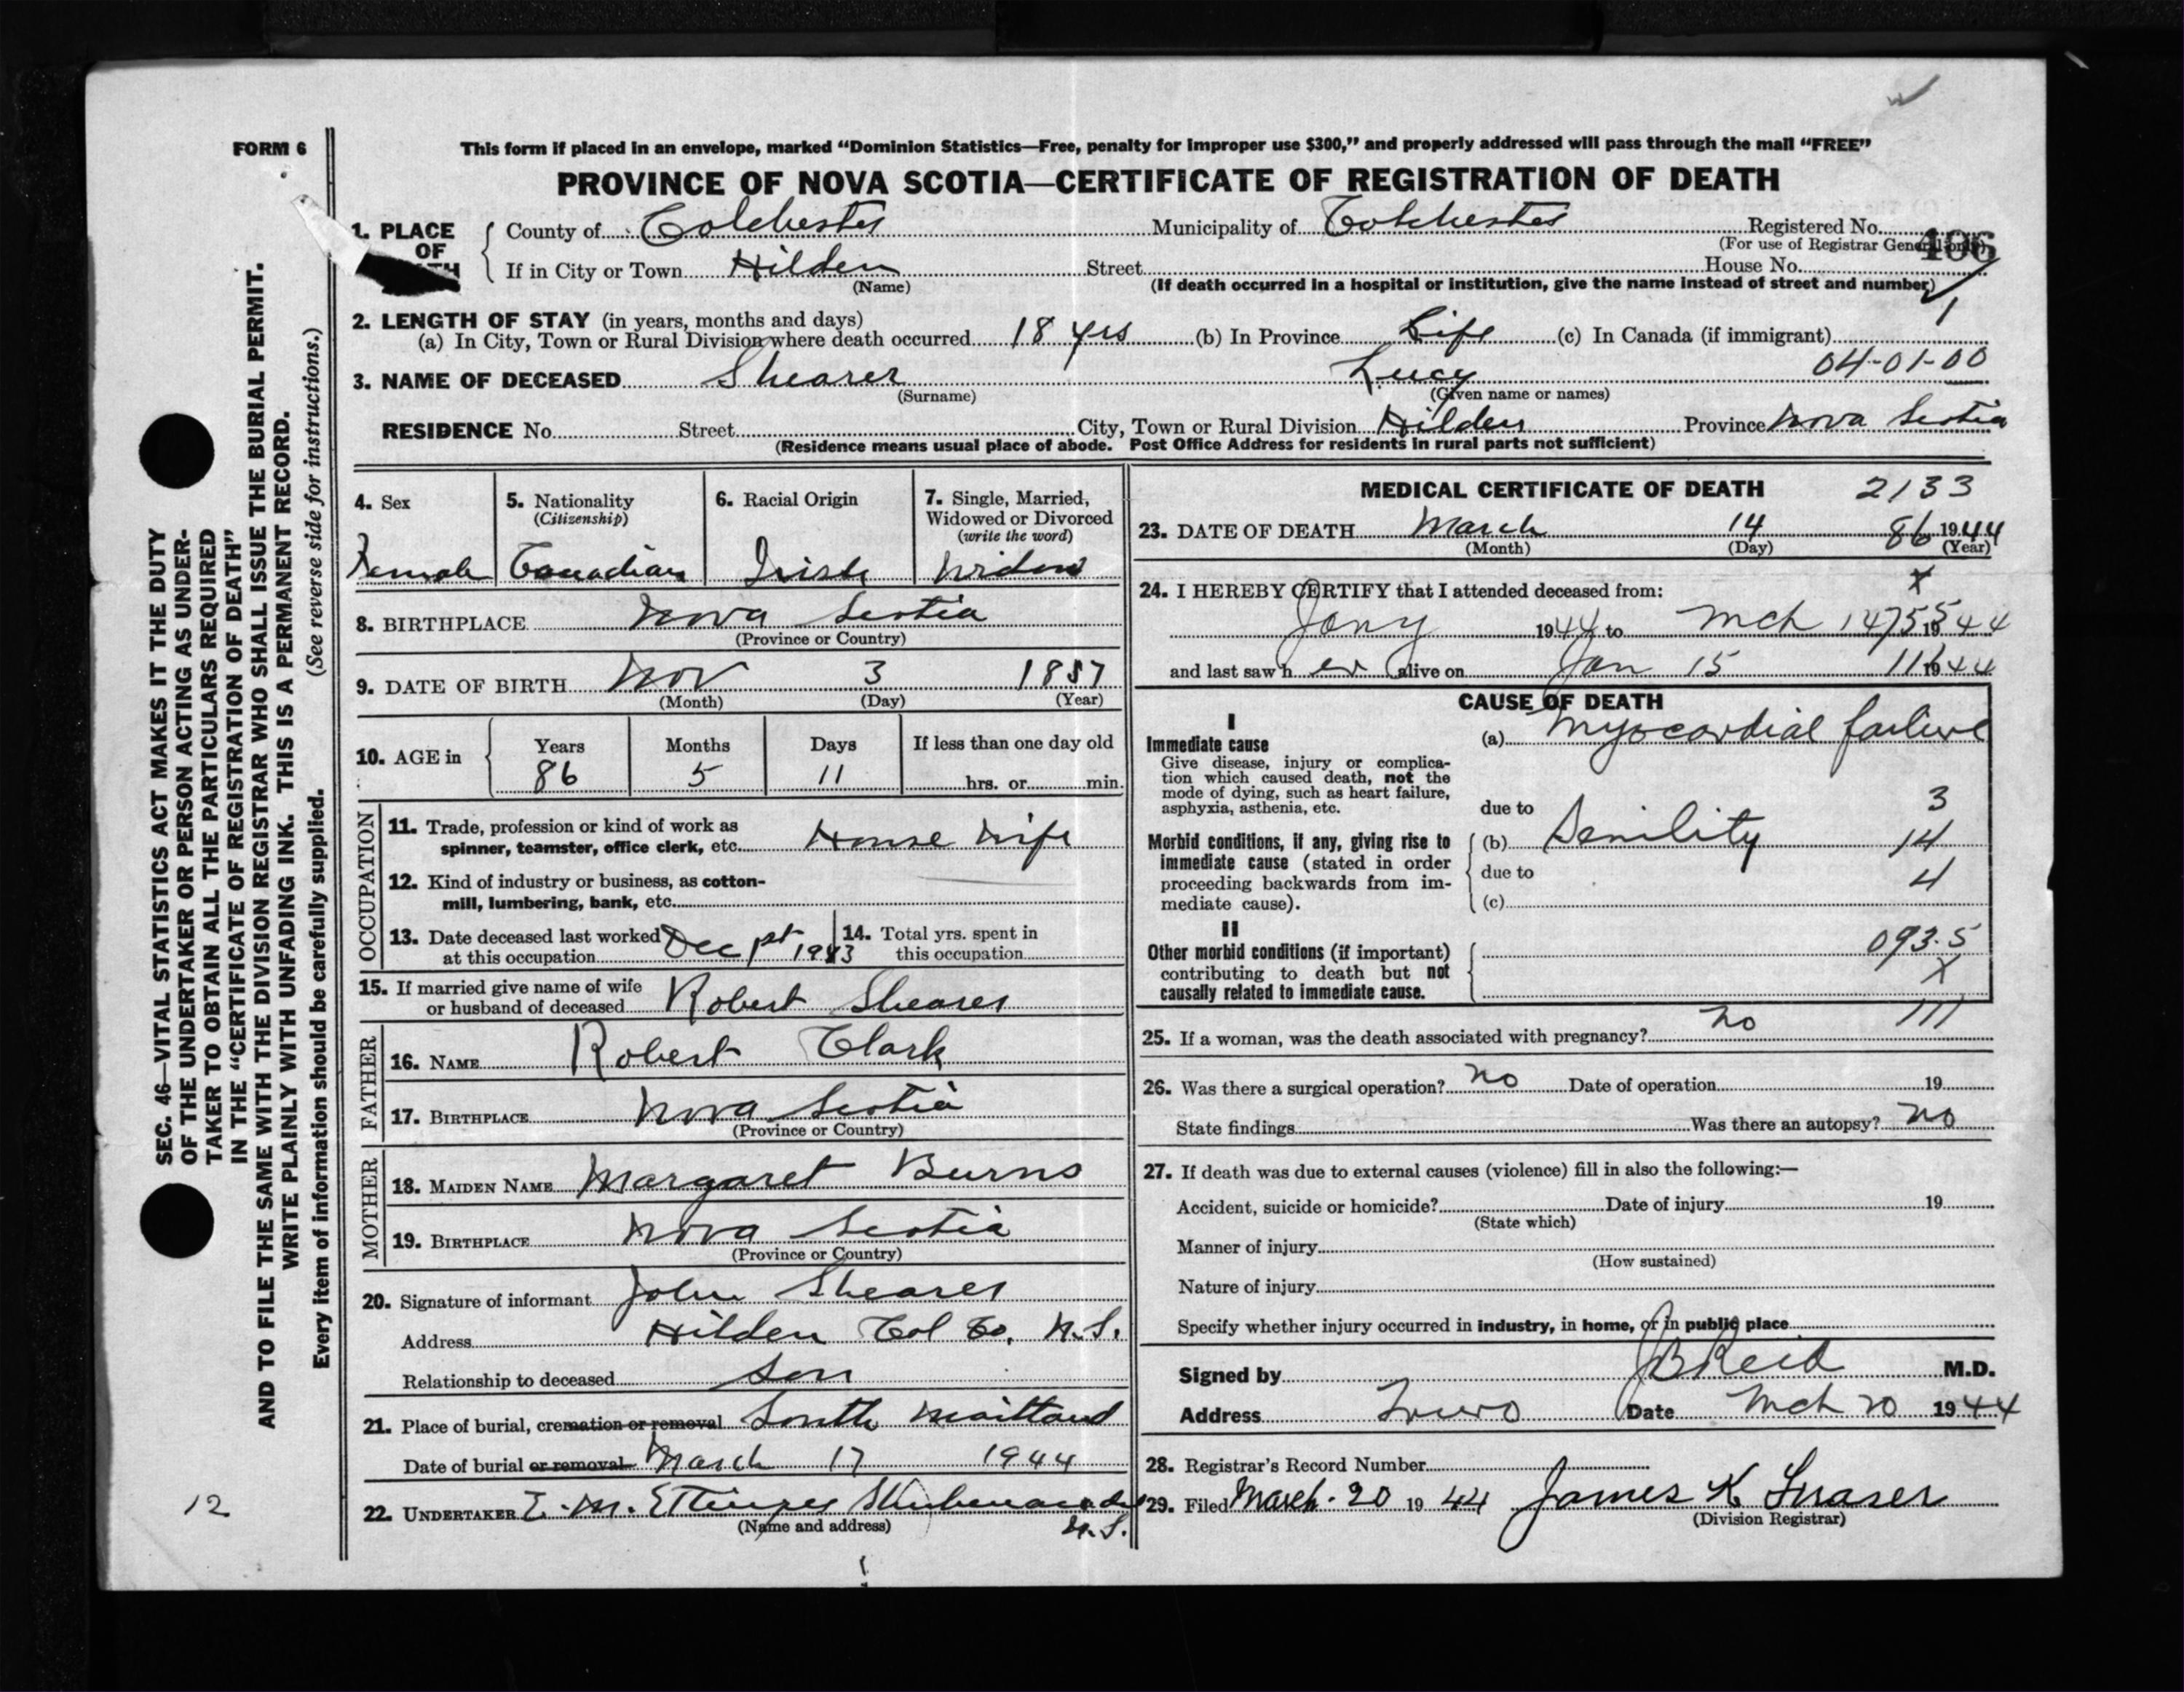 FORM 6
This form if placed in an envelope, marked “Dominion Statistics—Free, penalty for improper use $300,” and properly addressed will pass through the mail “FREE”
PROVINCE OF NOVA SCOTIA—CERTIFICATE OF REGISTRATION OF DEATH
1. PLACE OF
County of Colchester Municipality of Colchester Registered No. 406
(For use of Registrar General only)
If in City or Town Hilden Street House No.
(Name) (If death occurred in a hospital or institution, give the name instead of street and number)
2. LENGTH OF STAY (in years, months and days)
(a) In City, Town or Rural Division where death occurred 18 yrs (b) In Province Life (c) In Canada (if immigrant)
04-01-00
3. NAME OF DECEASED Shearer Lucy
(Surname) (Given name or names)
RESIDENCE No. Street City, Town or Rural Division Hilden Province Nova Scotia
(Residence means usual place of abode. Post Office Address for residents in rural parts not sufficient)
4. Sex
Female
5. Nationality
(Citizenship)
Canadian
6. Racial Origin
Irish
7. Single, Married,
Widowed or Divorced
(write the word)
Widow
8. BIRTHPLACE Nova Scotia
(Province or Country)
9. DATE OF BIRTH Nov 3 1857
(Month) (Day) (Year)
10. AGE in
Years Months Days If less than one day old
86 5 11 hrs. or min.
OCCUPATION
11. Trade, profession or kind of work as
spinner, teamster, office clerk, etc. House Wife
12. Kind of industry or business, as cotton-
mill, lumbering, bank, etc.
13. Date deceased last worked
at this occupation Dec 1st 1943
14. Total yrs. spent in
this occupation
15. If married give name of wife
or husband of deceased Robert Shearer
FATHER
16. NAME Robert Clark
17. BIRTHPLACE Nova Scotia
(Province or Country)
MOTHER
18. MAIDEN NAME Margaret Burns
19. BIRTHPLACE Nova Scotia
(Province or Country)
20. Signature of informant John Shearer
Address Hilden Col Co. N.S.
Relationship to deceased Son
21. Place of burial, cremation or removal South Maitland
Date of burial or removal March 17 1944
22. UNDERTAKER E. M. Ettinger Shubenacadie
(Name and address) N.S.
MEDICAL CERTIFICATE OF DEATH 2133
23. DATE OF DEATH March 14 86 1944
(Month) (Day) (Year)
24. I HEREBY CERTIFY that I attended deceased from: x
Jany 1944 to Mch 14 1944
and last saw her alive on Jan 15 1944
CAUSE OF DEATH
I
Immediate cause
Give disease, injury or complica-
tion which caused death, not the
mode of dying, such as heart failure,
asphyxia, asthenia, etc.
(a) Myocardial failure
due to 3
Morbid conditions, if any, giving rise to
immediate cause (stated in order
proceeding backwards from im-
mediate cause).
(b) Senility 14
due to 4
(c)
II
Other morbid conditions (if important)
contributing to death but not
causally related to immediate cause.
093.5
X
111
25. If a woman, was the death associated with pregnancy? no
26. Was there a surgical operation? no Date of operation 19
State findings Was there an autopsy? no
27. If death was due to external causes (violence) fill in also the following:—
Accident, suicide or homicide? Date of injury 19
(State which)
Manner of injury
(How sustained)
Nature of injury
Specify whether injury occurred in industry, in home, or in public place
Signed by J B Reid M.D.
Address Truro Date Mch 20 1944
28. Registrar's Record Number
29. Filed March 20 1944 James K Fraser
(Division Registrar)
SEC. 46—VITAL STATISTICS ACT MAKES IT THE DUTY
OF THE UNDERTAKER OR PERSON ACTING AS UNDER-
TAKER TO OBTAIN ALL THE PARTICULARS REQUIRED
IN THE “CERTIFICATE OF REGISTRATION OF DEATH”
AND TO FILE THE SAME WITH THE DIVISION REGISTRAR WHO SHALL ISSUE THE BURIAL PERMIT.
WRITE PLAINLY WITH UNFADING INK. THIS IS A PERMANENT RECORD.
Every item of information should be carefully supplied. (See reverse side for instructions.)
12